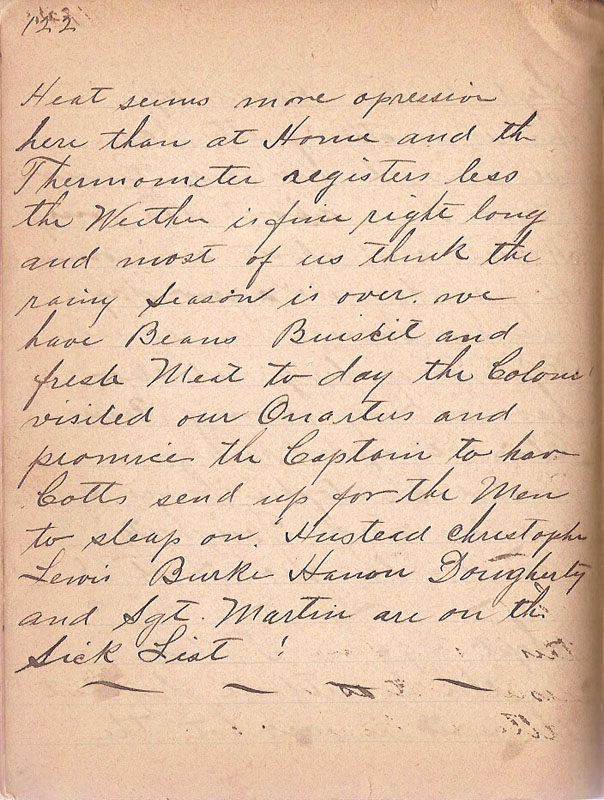 122
Heat seems more opressive
here than at Home and the
Thermometer registers less
the Weither is fine right long
and most of us think the
rainy Season is over. we
have Beans Buiskit and
fresh Meat to day the Colonel
visited our Quarters and
promice the Captain to have
Cotts send up for the Men
to sleap on. Hustead Christophe
Lewis Burke Hanon Dougherty
and Sgt. Martin are on the
Sick List !